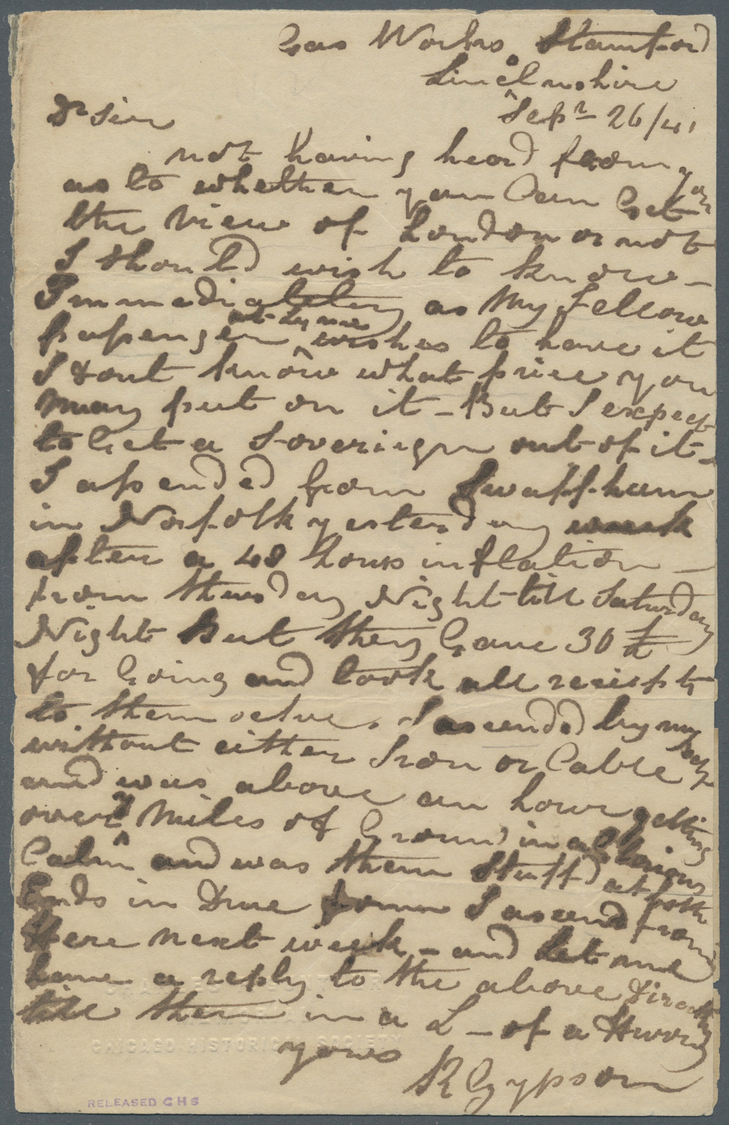 Gas Works Stamford
Lincolnshire
Sepr 26/41
Dr Sir
not having heard from you
as to whether you Can Get
the View of London or not
I should wish to know -
Immediately as My fellow
pasenger at Lynn wishes to have it
I dont know what price you
may put on it - But I expect
to Get a Soveriegn out of it -
I assended from Swaffham
in Norfolk yesterday
after a 48 hours inflation -
from Thursday Night till Saturday
Night But they Gave 30 £
for Going and took all reciepts
to themselves. I ascended by my self
without either Iron or Cable
and was above an hour getting
over Miles of Ground in a
Calm and was then Stuff'd at both
Ends in Due form I ascend from
Here next week - and let me
have a reply to the above directly
till then in a L - of a Hurry
yours
R Gypson
CHICAGO HISTORICAL SOCIETY
RELEASED CHS